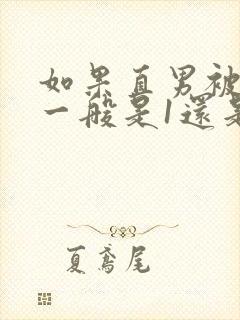 如果直男被
一般是1還是
夏鳶尾